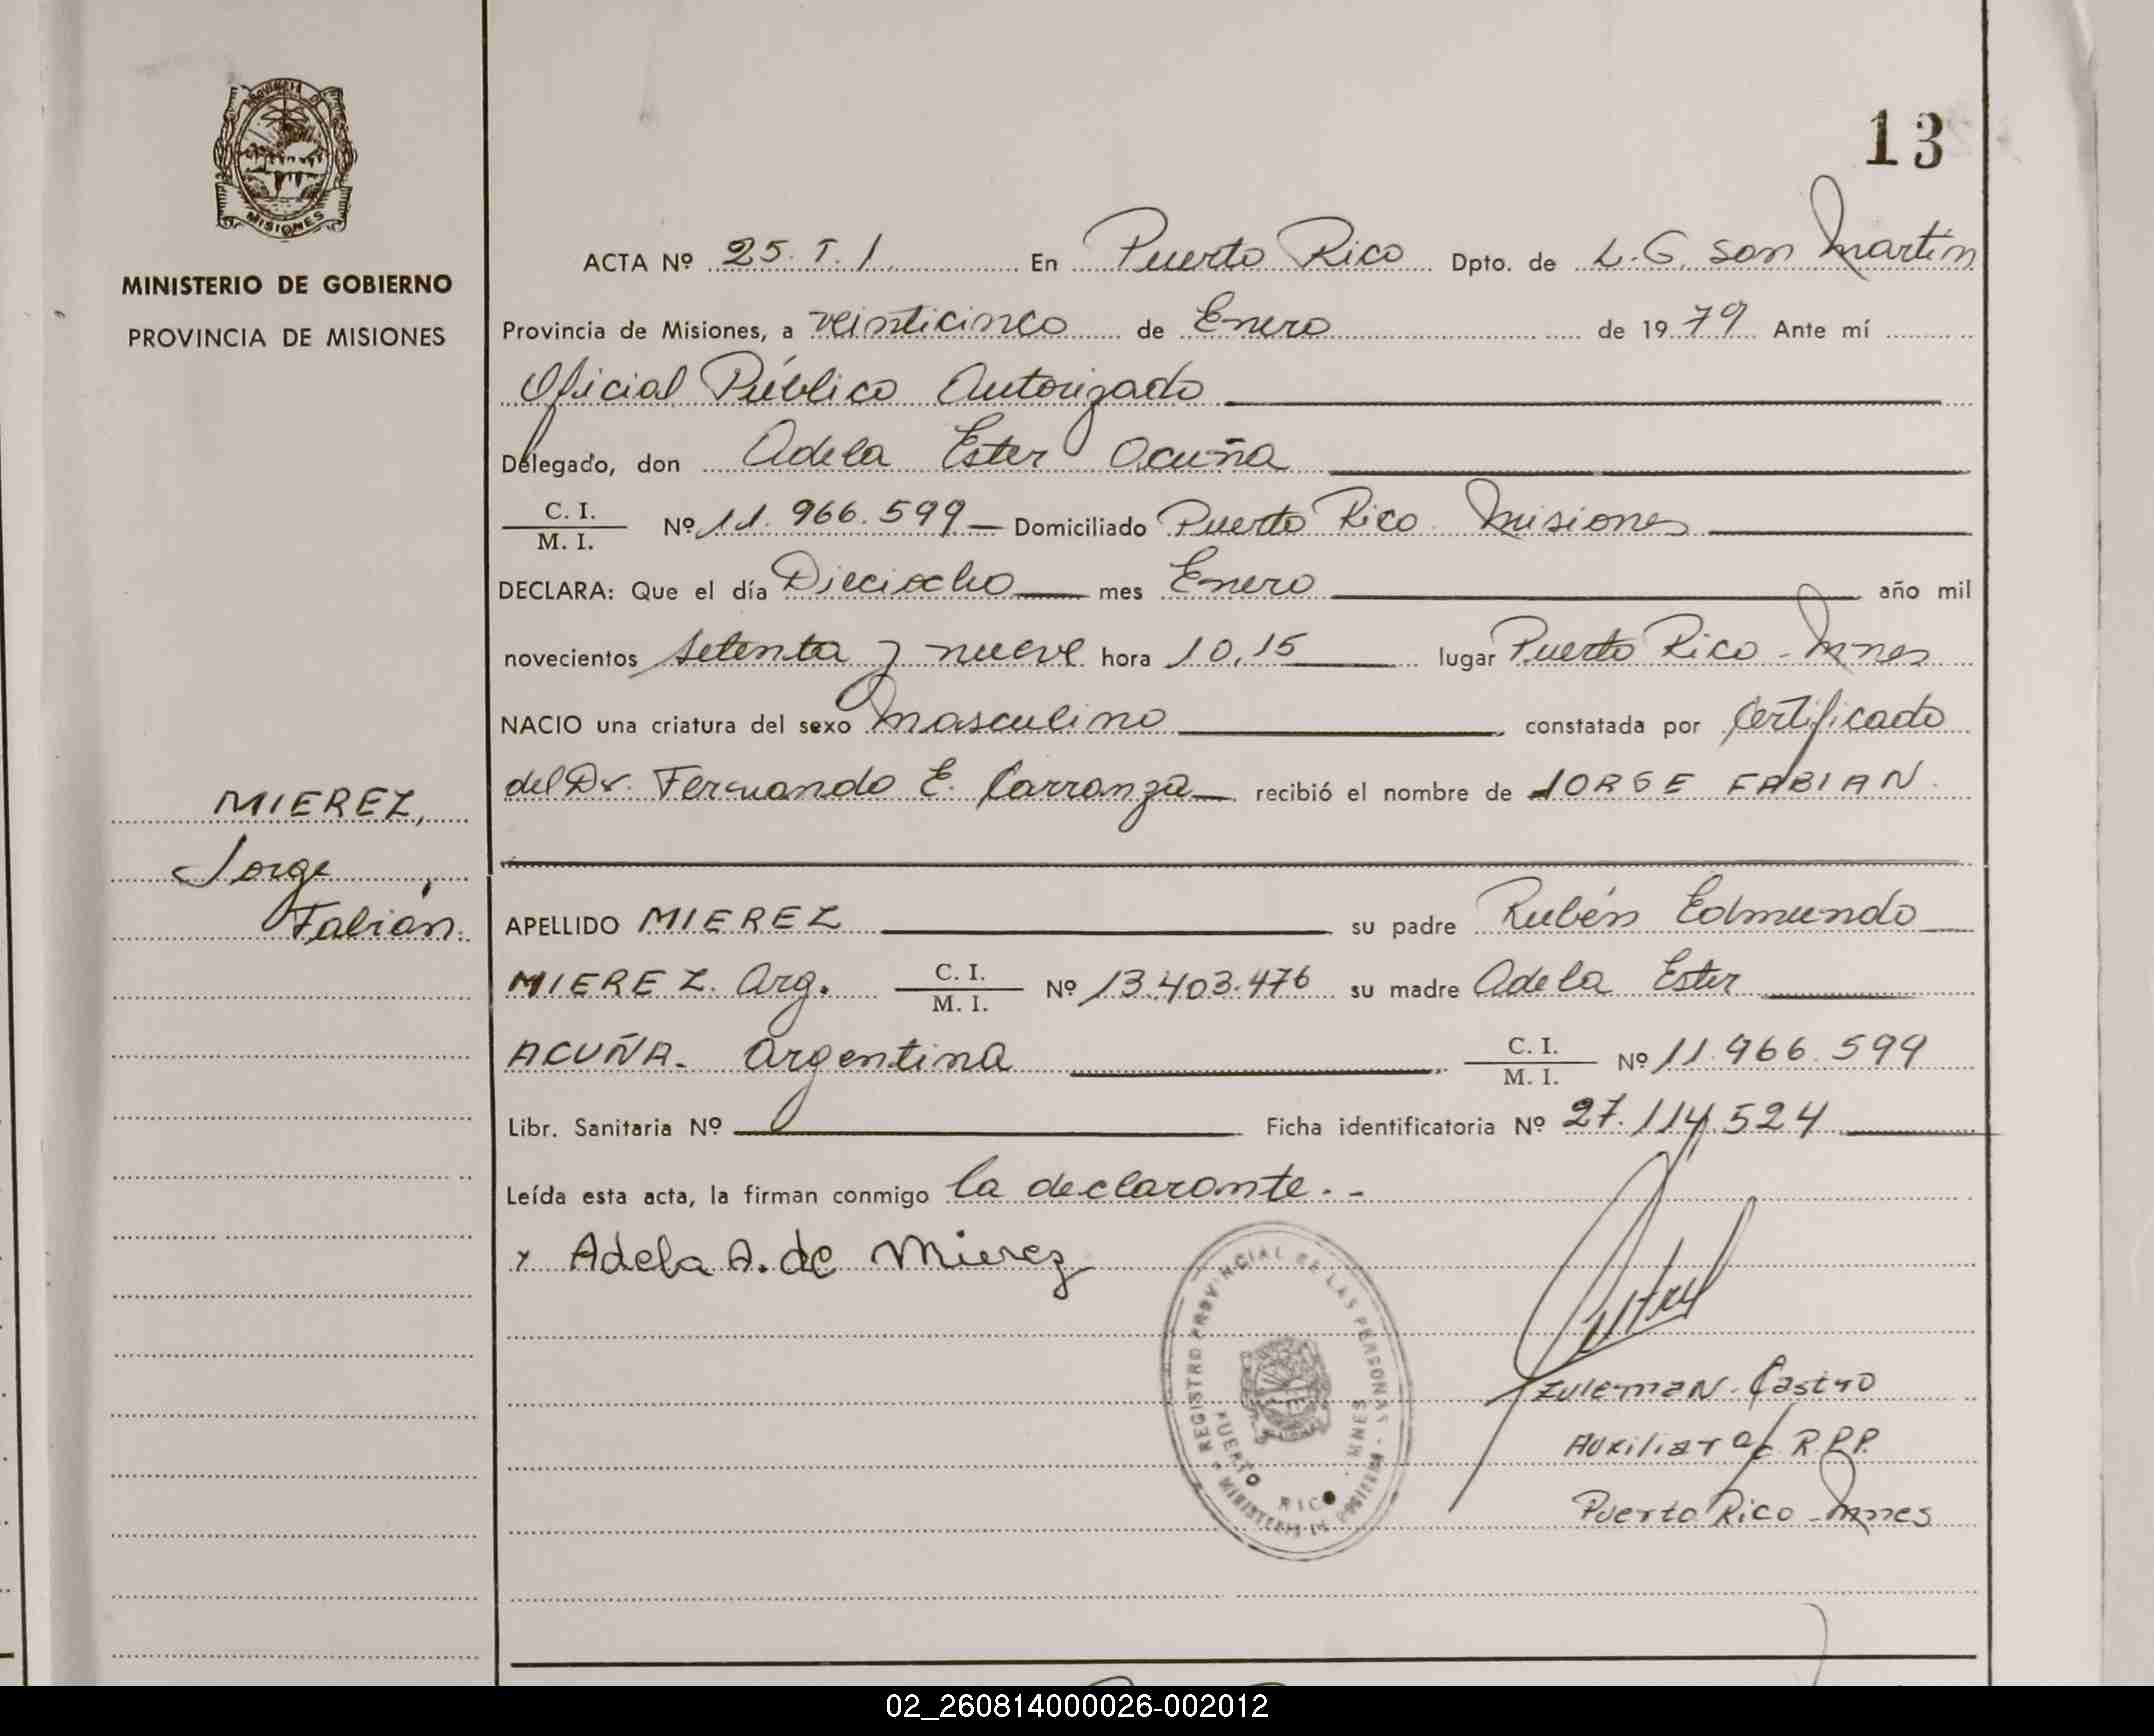 13
MINISTERIO DE GOBIERNO
PROVINCIA DE MISIONES
MISIONES
MIEREZ,
Jorge
Fabián.
ACTA Nº 25. T. 1. En Puerto Rico Dpto. de L. G. San Martín
Provincia de Misiones, a veinticinco de Enero de 1979 Ante mí
Oficial Público Autorizado
Delegado, don Adela Ester Acuña
C. I.
M. I. Nº 11.966.599 Domiciliado Puerto Rico Misiones
DECLARA: Que el día Dieciocho mes Enero año mil
novecientos setenta y nueve hora 10,15 lugar Puerto Rico - Mnes
NACIO una criatura del sexo masculino constatada por certificado
del Dr. Fernando E. Carranza recibió el nombre de JORGE FABIAN.
APELLIDO MIEREZ su padre Rubén Edmundo
MIEREZ. Arg. C. I.
M. I. Nº 13.403.476 su madre Adela Ester
ACUÑA. Argentina C. I.
M. I. Nº 11.966.599
Libr. Sanitaria Nº Ficha identificatoria Nº 27.114.524
Leída esta acta, la firman conmigo la declarante. -
x Adela A. de Mierez
REGISTRO PROVINCIAL DE LAS PERSONAS
PUERTO RICO MNES
MINISTERIO DE
Zulema N. Castro
Auxiliar a/c R.P.P.
Puerto Rico - Mnes
02_260814000026-002012